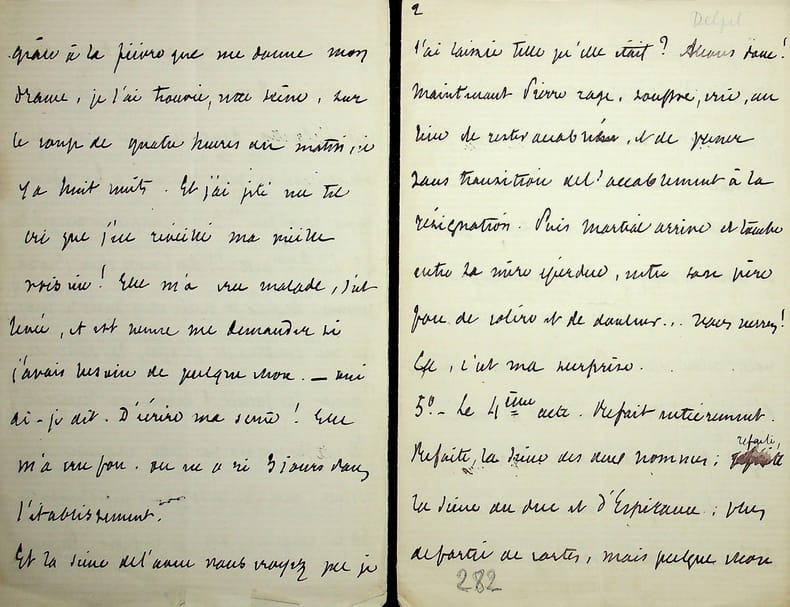 grâce à la fièvre que me donne mon
drame, je l'ai trouvée, notre scène, sur
le coup de quatre heures du matin, il
y a huit nuits. Et j'ai jeté un tel
cri que j'ai réveillé ma vieille
voisine! Elle m'a cru malade, s'est
levée, et est venue me demander si
j'avais besoin de quelque chose. — Oui
ai-je dit. D'écrire ma scène! Elle
m'a cru fou. On en a ri 3 jours dans
l'établissement.
Et la scène de l'aveu vous croyez que je
2
Delpit
l'ai laissée telle qu'elle était? Allons donc!
Maintenant Pierre rage, souffre, crie, au
lieu de rester accablé, et de passer
sans transition de l'accablement à la
résignation. Puis Martial arrive et tombe
entre sa mère éperdue, entre son père
fou de colère et de douleur... Vous verrez!
Ça, c'est ma surprise.
5º - Le 4ème acte. Refait entièrement.
Refaite, la scène des deux hommes; refaite
la scène du duc et d'Espérance; plus
de partie de cartes, mais quelque chose
282